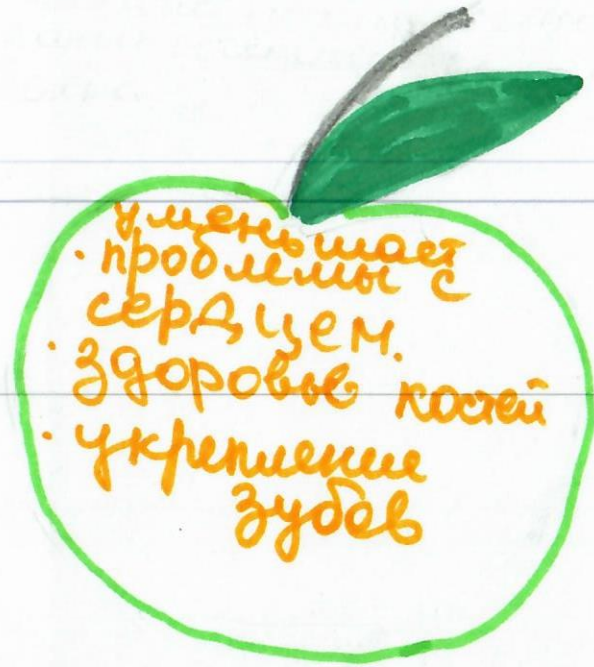 уменьшает
· проблемы с
сердцем.
· Здоровье костей
· укрепление
зубов